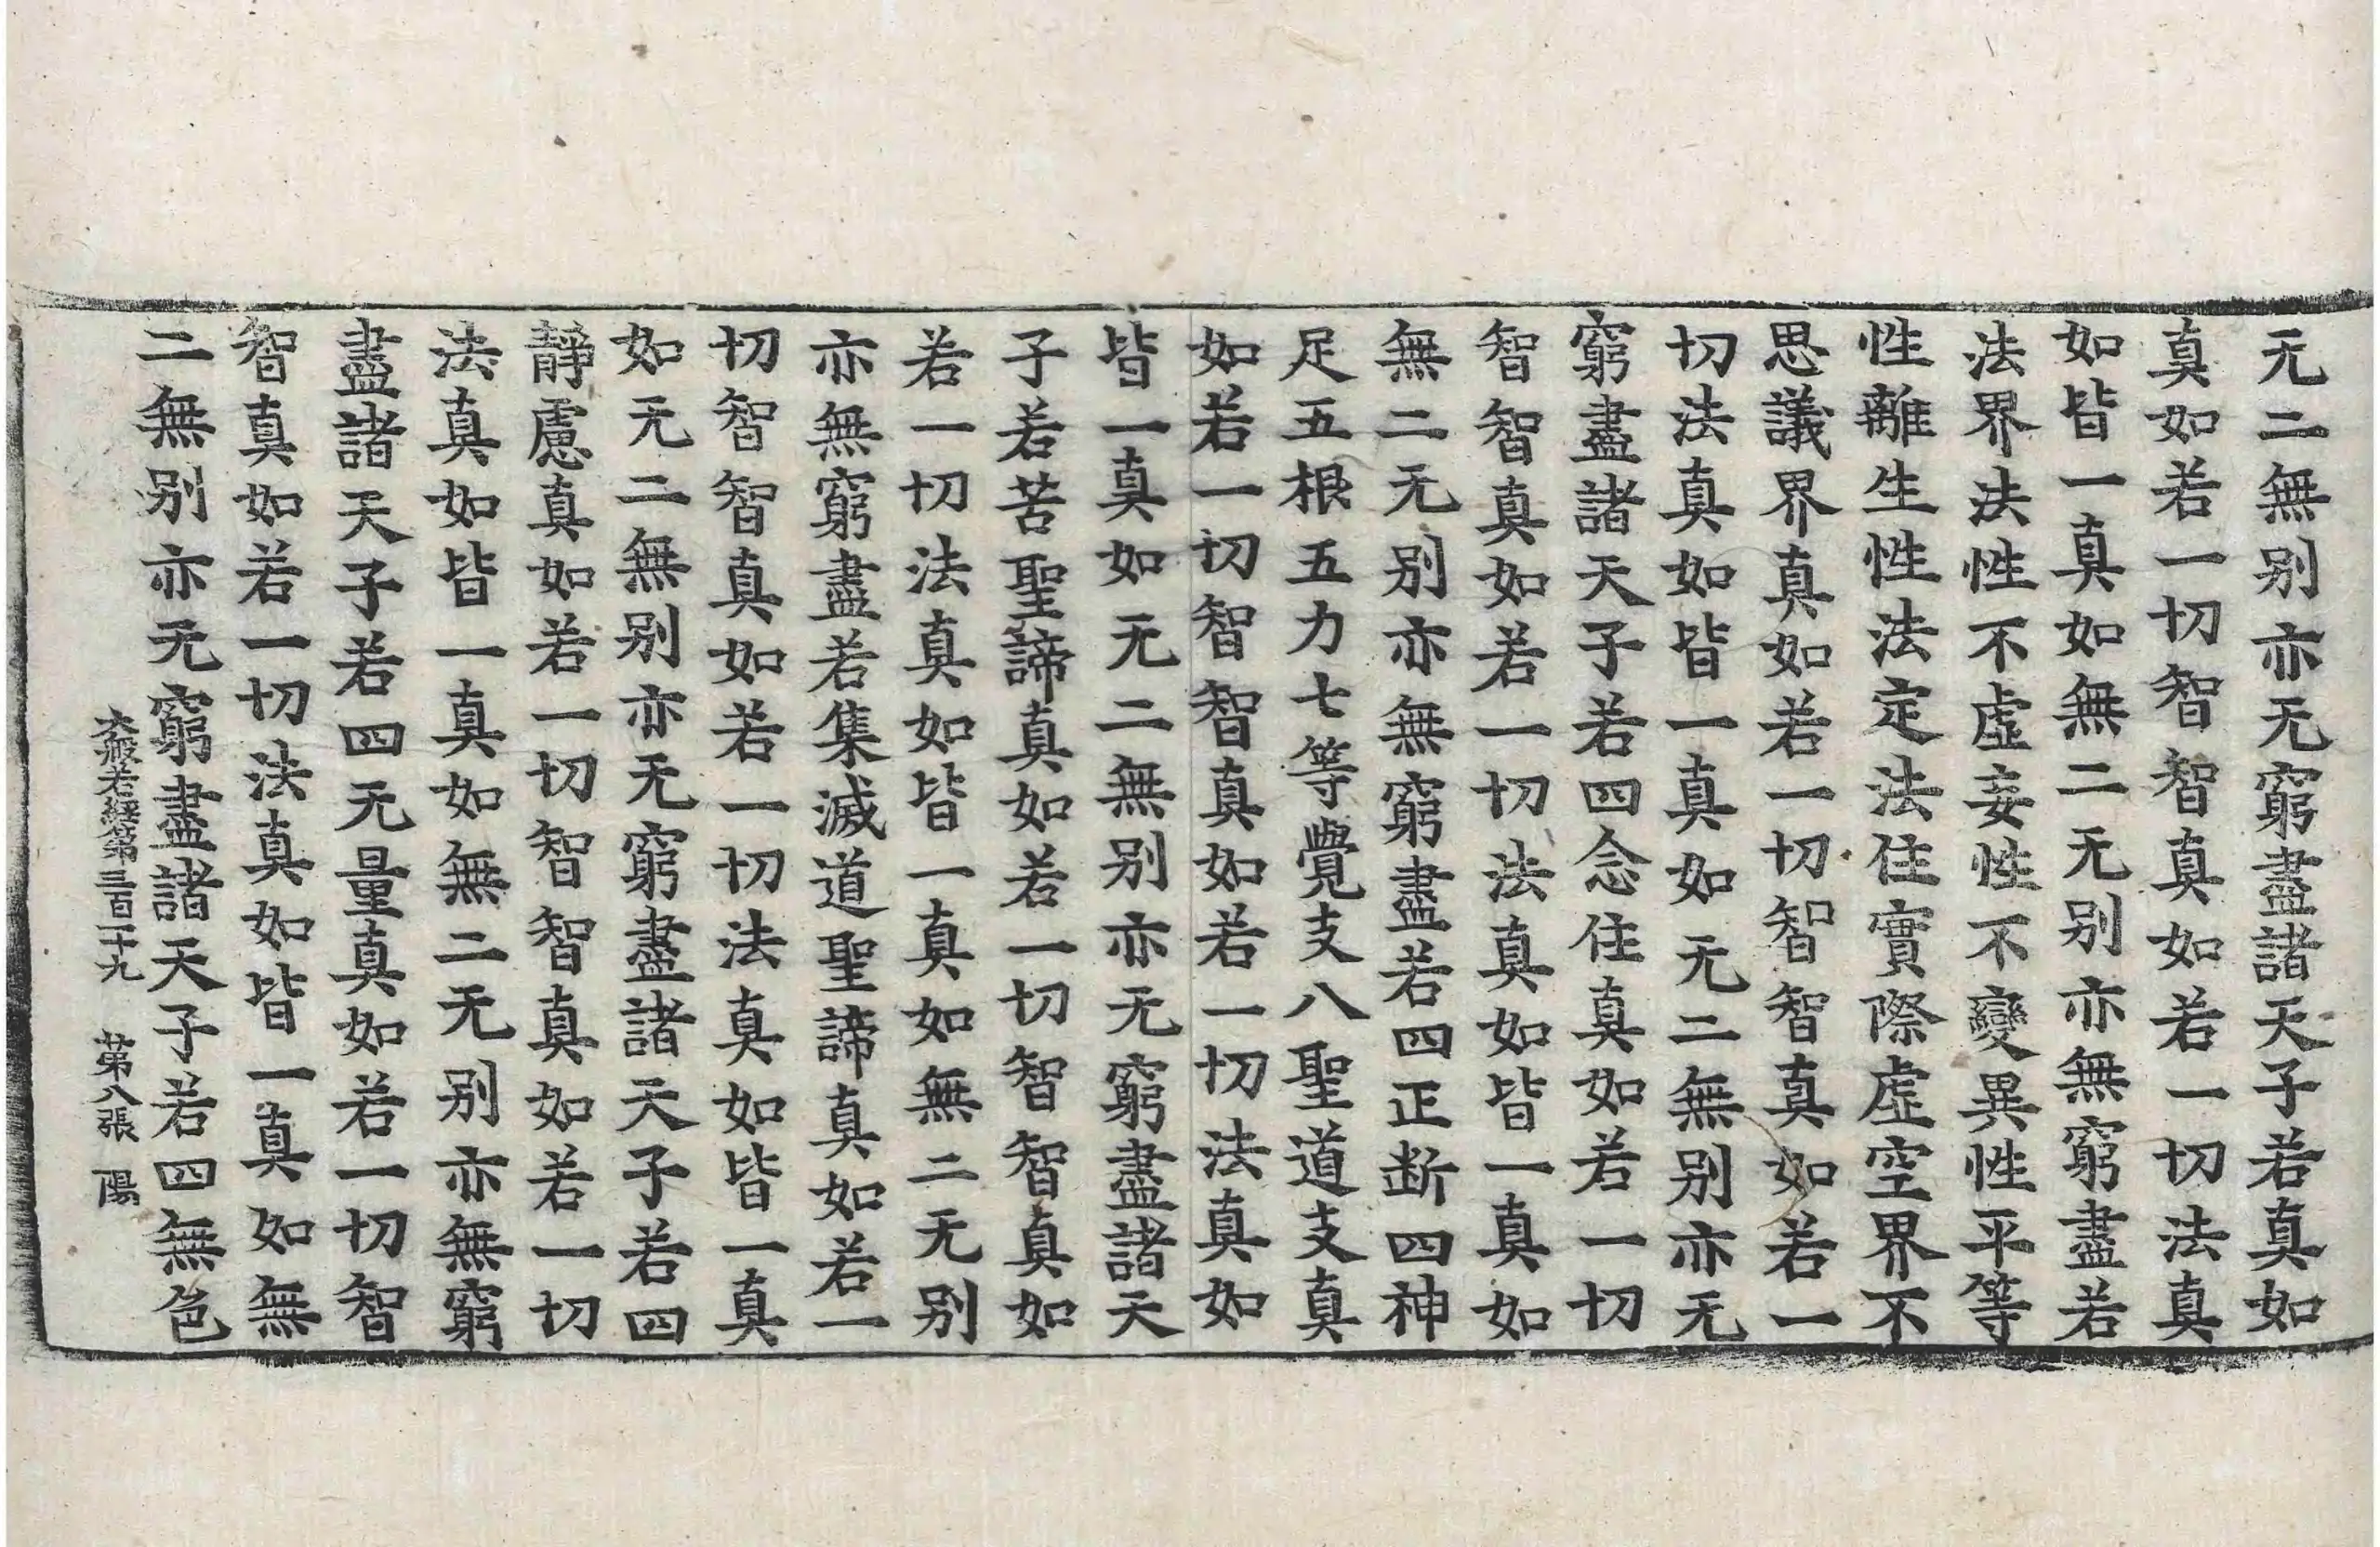 无二無别亦无窮盡諸天子若真如
真如若一切智智真如若一切法真
如皆一真如無二无别亦無窮盡若
法界法性不虛妄性不變異性平等
性離生性法定法住實際虛空界不
思議界真如若一切智智真如若一
切法真如皆一真如无二無别亦无
窮盡諸天子若四念住真如若一切
智智真如若一切法真如皆一真如
無二无别亦無窮盡若四正断四神
足五根五力七等覺支八聖道支真
如若一切智智真如若一切法真如
皆一真如无二無别亦无窮盡諸天
子若苦聖諦真如若一切智智真如
若一切法真如皆一真如無二无别
亦無窮盡若集滅道聖諦真如若一
切智智真如若一切法真如皆一真
如无二無别亦无窮盡諸天子若四
靜慮真如若一切智智真如若一切
法真如皆一真如無二无别亦無窮
盡諸天子若四无量真如若一切智
智真如若一切法真如皆一真如無
二無别亦无窮盡諸天子若四無色
大般若經第三百一十九 第八張 陽